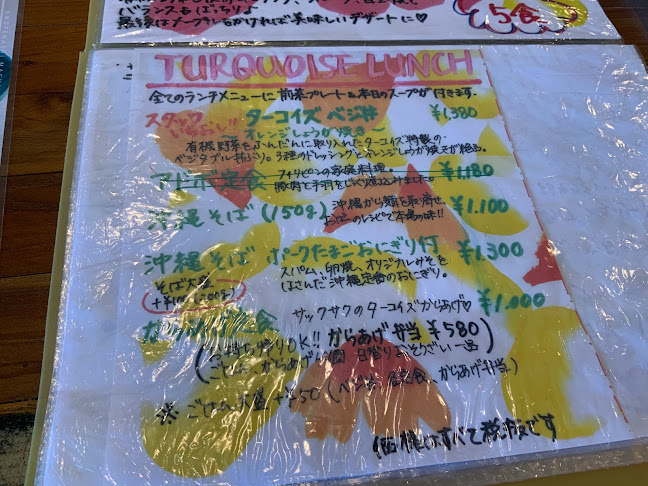 最後はスープレもかければ美味しいデザートに♡
5食
TURQUOISE LUNCH
全てのランチメニューに前菜プレート&本日のスープが付きます。
スタッフいちおし!! ターコイズ ベジ丼 ¥1,380
〜オレンジしょうが焼き〜
有機野菜をふんだんに取り入れたターコイズ特製の
ベジタブル丼ぶり。3種のドレッシングとオレンジしょうが焼きが絶品。
アドボ定食 フィリピンの家庭料理。 ¥1,180
豚肉と手羽をじっくり煮込みました。
沖縄そば (150g) 沖縄から麺を取り寄せ、 ¥1,100
のレシピで本場の味!!
沖縄そば ポークたまごおにぎり付 ¥1,300
そば大盛 スパム、卵焼、オリジナルみそを
(200g) はさんだ沖縄定番のおにぎり。
からあげ定食 サックサクのターコイズからあげ♡ ¥1,000
(お持ち帰りOK!! からあげ弁当 ¥580)
ごはん、からあげ 個 日替りおそうざい一品
※ ごはん大盛 +¥50 (ベジ丼、定食、からあげ弁当)
価格はすべて税抜です